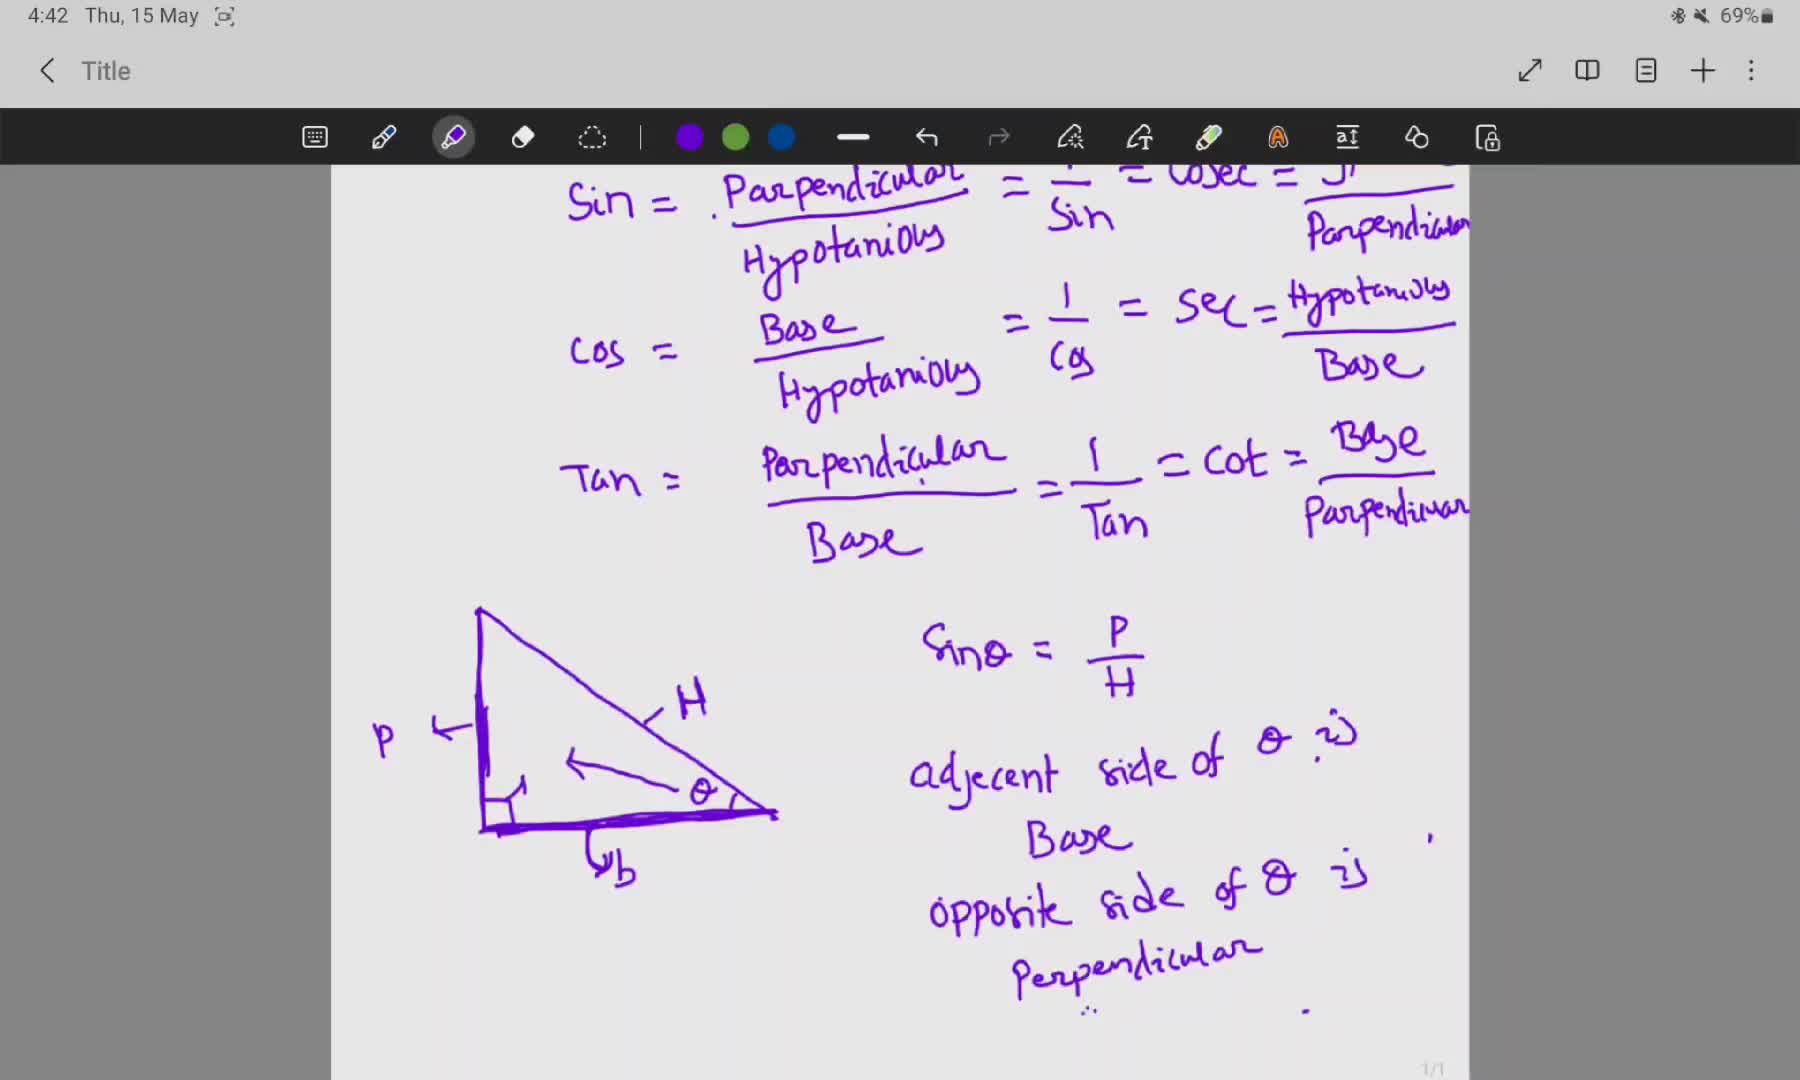 4:42 Thu, 15 May 69%
Title
Sin = Parpendicular / Hypotanious = 1 / Sin = Cosec = / Parpendicular
Cos = Base / Hypotanious = 1 / Cos = Sec = Hypotanious / Base
Tan = Parpendicular / Base = 1 / Tan = Cot = Base / Parpendicular
P
H
θ
b
Sinθ = P / H
adjecent side of θ is
Base
opposite side of θ is
Perpendicular
1/1